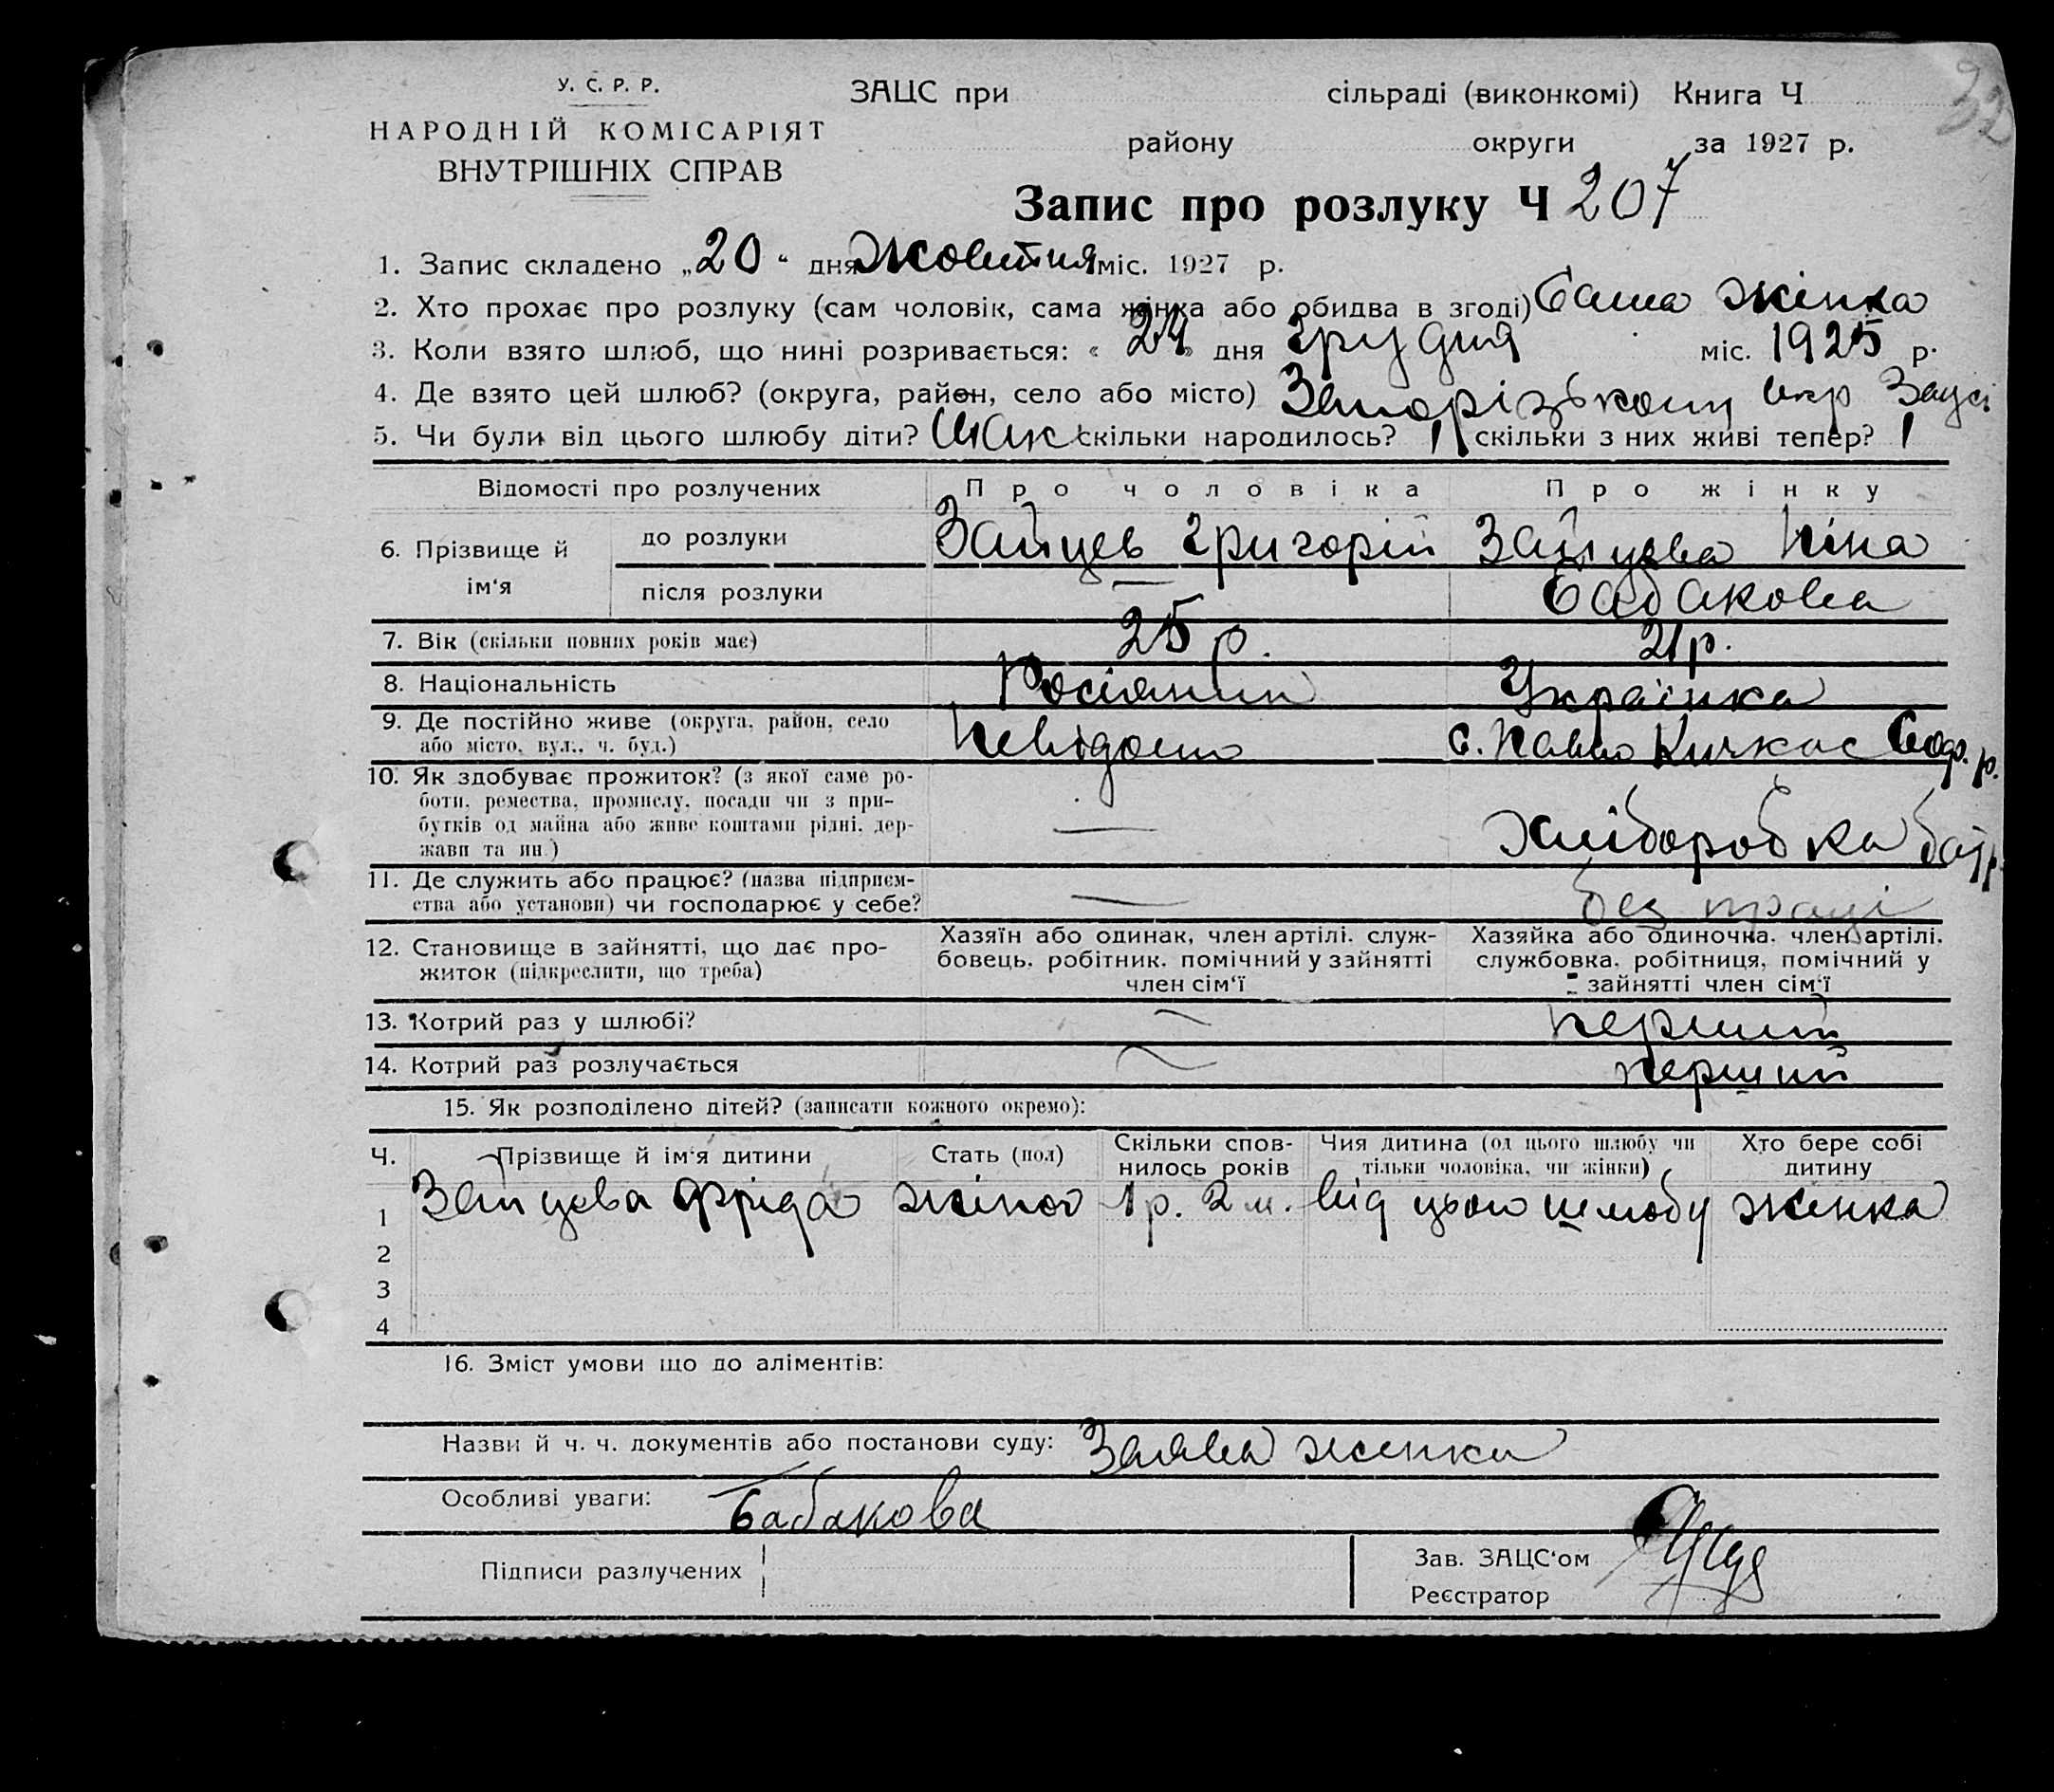 У. С. Р. Р.
НАРОДНІЙ КОМІСАРІЯТ
ВНУТРІШНІХ СПРАВ
ЗАЦС при сільраді (виконкомі) Книга Ч
32
району округи за 1927 р.
Запис про розлуку Ч 207
1. Запис складено „20“ дня Жовтня міс. 1927 р.
2. Хто прохає про розлуку (сам чоловік, сама жінка або обидва в згоді) Сама жінка
3. Коли взято шлюб, що нині розривається: « 24 » дня грудня міс. 1925 р.
4. Де взято цей шлюб? (округа, район, село або місто) Запорізьком окр Загсі
5. Чи були від цього шлюбу діти? Так скільки народилось? 1 скільки з них живі тепер? 1
Відомості про розлучених Про чоловіка Про жінку
6. Прізвище й ім‘я
до розлуки Зайцев Григорій Зайцева Ніна
після розлуки — Бабакова
7. Вік (скільки повних років має) 25 р. 21 р.
8. Національність Росіянин Українка
9. Де постійно живе (округа, район, село
або місто, вул., ч. буд.) Невідомо с. Павло Кичкас Соф. р.
10. Як здобуває прожиток? (з якої саме ро-
боти, ремества, промислу, посади чи з при-
бутків од майна або живе коштами рідні, дер-
жави та ин.) — Хліборобка
11. Де служить або працює? (назва підприєм-
ства або установи) чи господарює у себе? — без праці
12. Становище в зайнятті, що дає про-
житок (підкреслити, що треба)
Хазяїн або одинак, член артілі, служ-
бовець, робітник, помічний у зайнятті
член сім‘ї
Хазяйка або одиночка, член артілі,
службовка, робітниця, помічний у
зайнятті член сім‘ї
13. Котрий раз у шлюбі? — перший
14. Котрий раз розлучається — перший
15. Як розподілено дітей? (записати кожного окремо):
Ч. Прізвище й ім‘я дитини Стать (пол) Скільки спов-
нилось років Чия дитина (од цього шлюбу чи
тільки чоловіка, чи жінки) Хто бере собі
дитину
1 Зайцева Фріда жіноч 1 р. 2 м. від цього шлюбу жінка
2
3
4
16. Зміст умови що до аліментів:
Назви й ч. ч. документів або постанови суду: Заява жінки
Особливі уваги: Бабакова
Підписи разлучених
Зав. ЗАЦС‘ом
Реєстратор